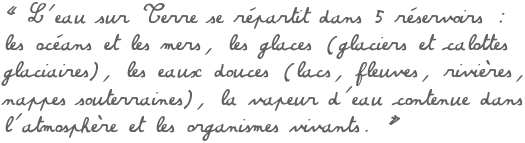 « L'eau sur Terre se répartit dans 5 réservoirs :
les océans et les mers, les glaces (glaciers et calottes
glaciaires), les eaux douces (lacs, fleuves, rivières,
nappes souterraines), la vapeur d'eau contenue dans
l'atmosphère et les organismes vivants. »